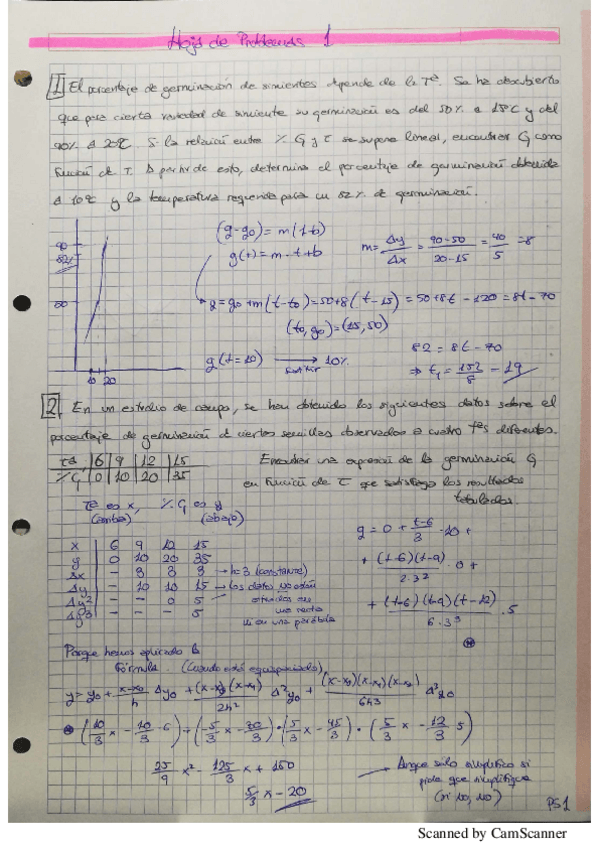 Hoja de Problemas 1
1 El porcentaje de germinación de simientes depende de la Tª. Se ha descubierto
que para cierta variedad de simiente su germinación es del 50% a 15ºC y del
90% a 20ºC. Si la relación entre % G y T se supone lineal, encontrar G como
función de T. A partir de esto, determina el porcentaje de germinación obtenida
a 10ºC y la temperatura requerida para un 82% de germinación.
90
82
50
10 20
(g-g0) = m(t+b)
g(t) = m·t+b
m = Δy/Δx = 90-50/20-15 = 40/5 = 8
g = g0+m(t-t0) = 50+8(t-15) = 50+8t-120 = 8t-70
(t0, g0) = (15, 50)
g(t=10) → 10%
82 = 8t-70
⇒ t1 = 152/8 = 19
2 En un estudio de campo, se han obtenido los siguientes datos sobre el
porcentaje de germinación d ciertas semillas observadas a cuatro tªs diferentes.
Tª | 6 | 9 | 12 | 15
% G | 0 | 10 | 20 | 35
Encontrar una expresión de la germinación G
en función de T que satisfaga los resultados
tabulados.
Tª es x, % G es y
(arriba) (abajo)
x 6 9 12 15
y 0 10 20 35
Δx - 3 3 3 → h=3 (constante)
Δy - 10 10 15 → Los datos no están
Δy² - - 0 5
una recta
Δy³ - - - 5
ni en una parábola
g = 0 + t-6/3 · 10 +
+ (t-6)(t-9)/2·3² · 0 +
+ (t-6)(t-9)(t-12)/6·3³ · 5
Porque hemos aplicado la
fórmula. (Cuando está equiespaciado)
y = y0 + x-x0/h Δy0 + (x-x0)(x-x1)/2h² Δ²y0 + (x-x0)(x-x1)(x-x2)/6h3 Δ³y0
25/9 x² - 125/3 x + 150
5/3 x - 20
→ Aunque solo simplifico si
pide que simplifique
(si no, no)
PS1
Scanned by CamScanner